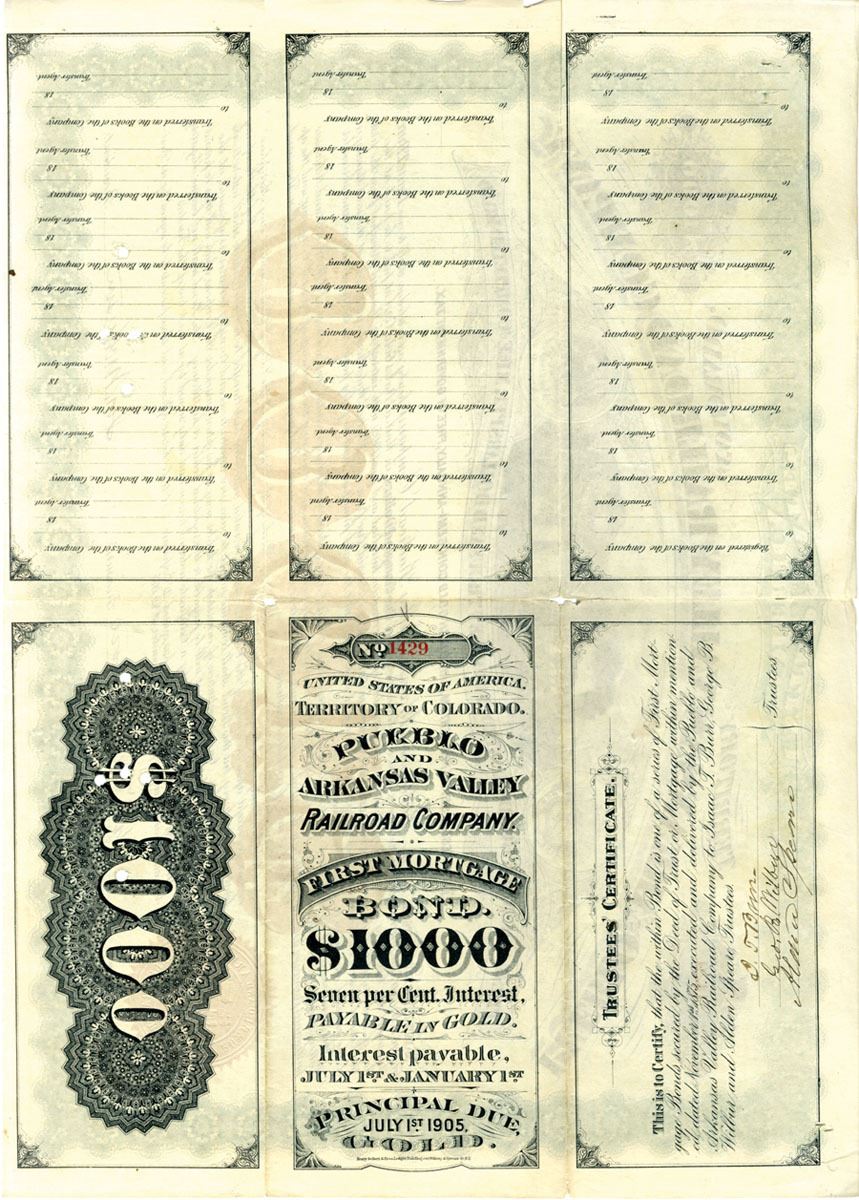 Registered on the Books of the Company
to
18
Transfer Agent
Transferred on the Books of the Company
to
18
Transfer Agent
Transferred on the Books of the Company
to
18
Transfer Agent
Transferred on the Books of the Company
to
18
Transfer Agent
Transferred on the Books of the Company
to
18
Transfer Agent
Transferred on the Books of the Company
to
18
Transfer Agent
Transferred on the Books of the Company
to
18
Transfer Agent
Transferred on the Books of the Company
to
18
Transfer Agent
Transferred on the Books of the Company
to
18
Transfer Agent
Transferred on the Books of the Company
to
18
Transfer Agent
Transferred on the Books of the Company
to
18
Transfer Agent
Transferred on the Books of the Company
to
18
Transfer Agent
Transferred on the Books of the Company
to
18
Transfer Agent
Transferred on the Books of the Company
to
18
Transfer Agent
Transferred on the Books of the Company
to
18
Transfer Agent
Transferred on the Books of the Company
to
18
Transfer Agent
Transferred on the Books of the Company
to
18
Transfer Agent
Transferred on the Books of the Company
to
18
Transfer Agent
Transferred on the Books of the Company
to
18
Transfer Agent
Transferred on the Books of the Company
to
18
Transfer Agent
Transferred on the Books of the Company
to
18
Transfer Agent
$1000
No 1429
UNITED STATES OF AMERICA.
TERRITORY OF COLORADO.
PUEBLO
AND
ARKANSAS VALLEY
RAILROAD COMPANY.
FIRST MORTGAGE
BOND.
$1000
Seven per Cent. Interest,
PAYABLE IN GOLD.
Interest payable,
JULY 1ST & JANUARY 1ST
PRINCIPAL DUE,
JULY 1ST 1905,
GOLD.
TRUSTEES' CERTIFICATE.
This is to Certify, that the within Bond is one of a series of First Mort-
gage Bonds secured by the Deed of Trust or Mortgage within mention-
ed, dated November 1st 1875, executed and delivered by the Pueblo and
Arkansas Valley Railroad Company to Isaac T. Burr, George B.
Wilbur and Alden Speare Trustees.
I. T. Burr
Geo B. Wilbur
Alden Speare
Trustees